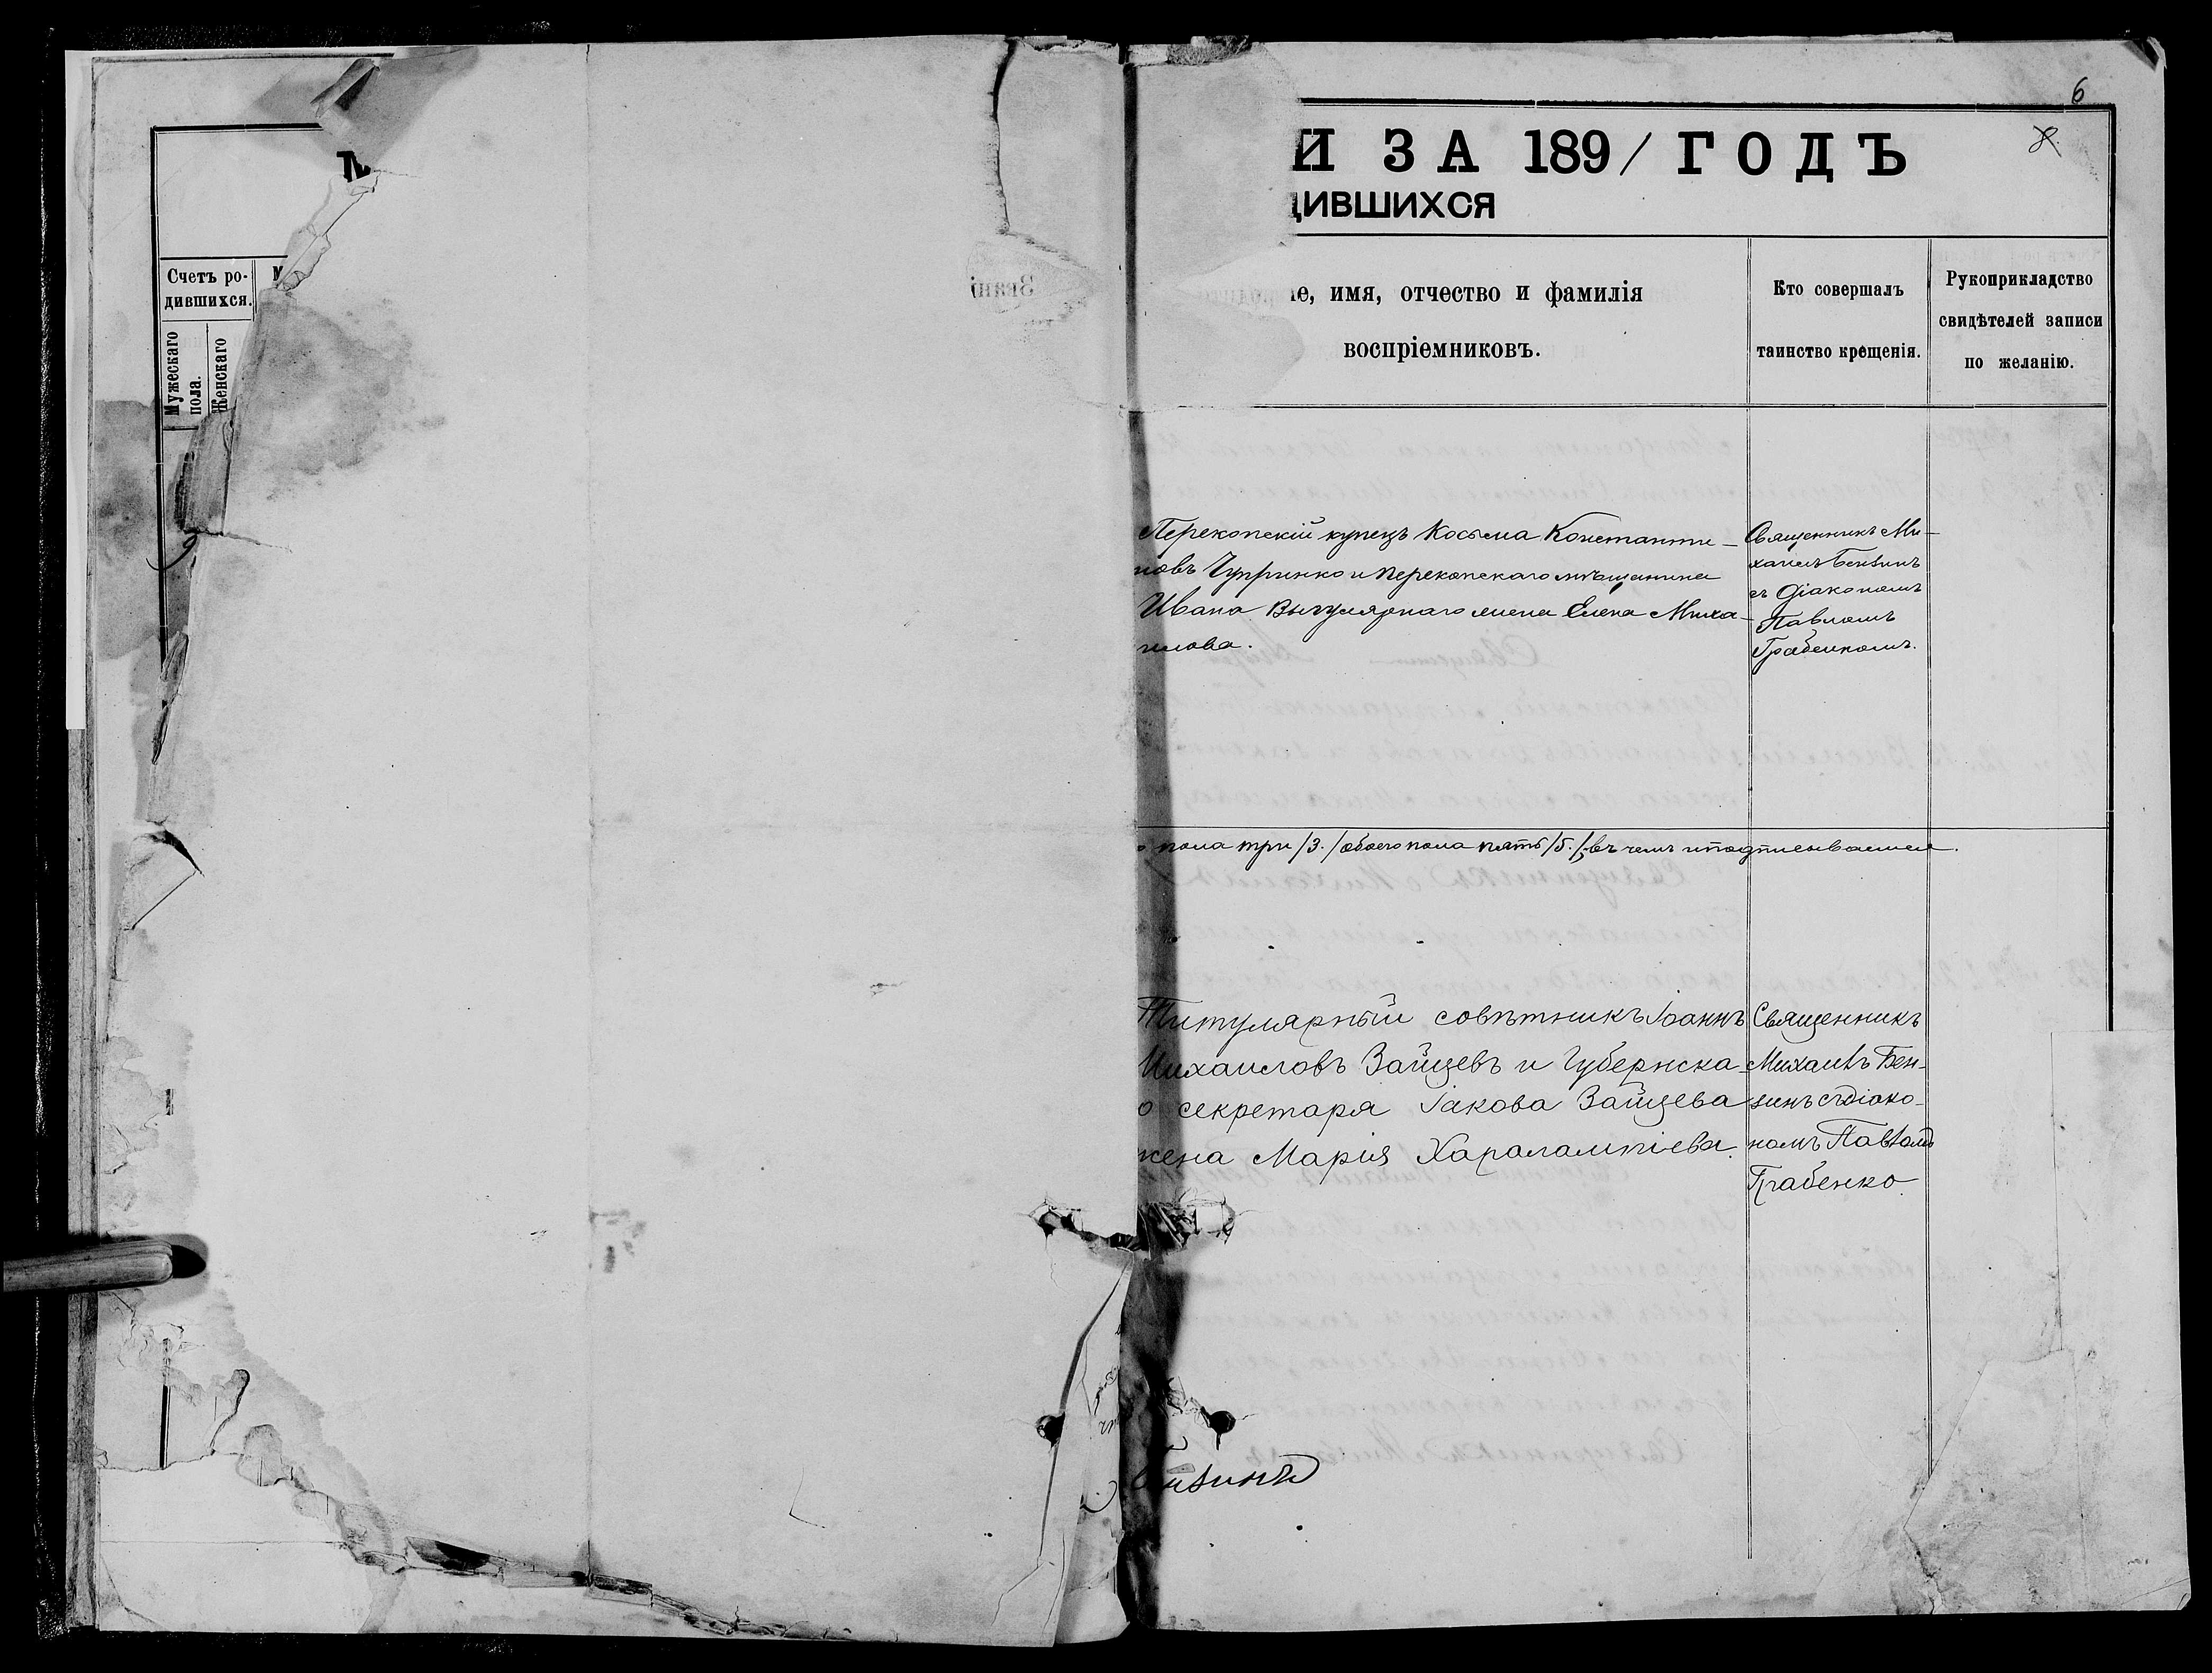 6
8.
И ЗА 1891 ГОДЪ
ДИВШИХСЯ
Счетъ ро-
дившихся.
Мужескаго
пола.
Женскаго
е, имя, отчество и фамилія
воспріемниковъ.
Кто совершалъ
таинство крещенія.
Рукоприкладство
свидѣтелей записи
по желанію.
Перекопскій купецъ Косьма Константи-
новъ Чупринко и перекопскаго мѣщанина
Ивана жена Елена Миха-
илова.
Священникъ Ми-
хаилъ Бензинъ
съ діакономъ
Павломъ
Грабенкомъ.
пола три /3./ обоего пола пять /5./, въ чемъ и подписываемся.
Титулярный совѣтникъ Іоаннъ
Михаиловъ Зайцевъ и Губернска-
о секретаря Іакова Зайцева
жена Марія Харалампіева.
Священникъ
Михаилъ Бен-
зинъ съ діако-
номъ Павломъ
Грабенко